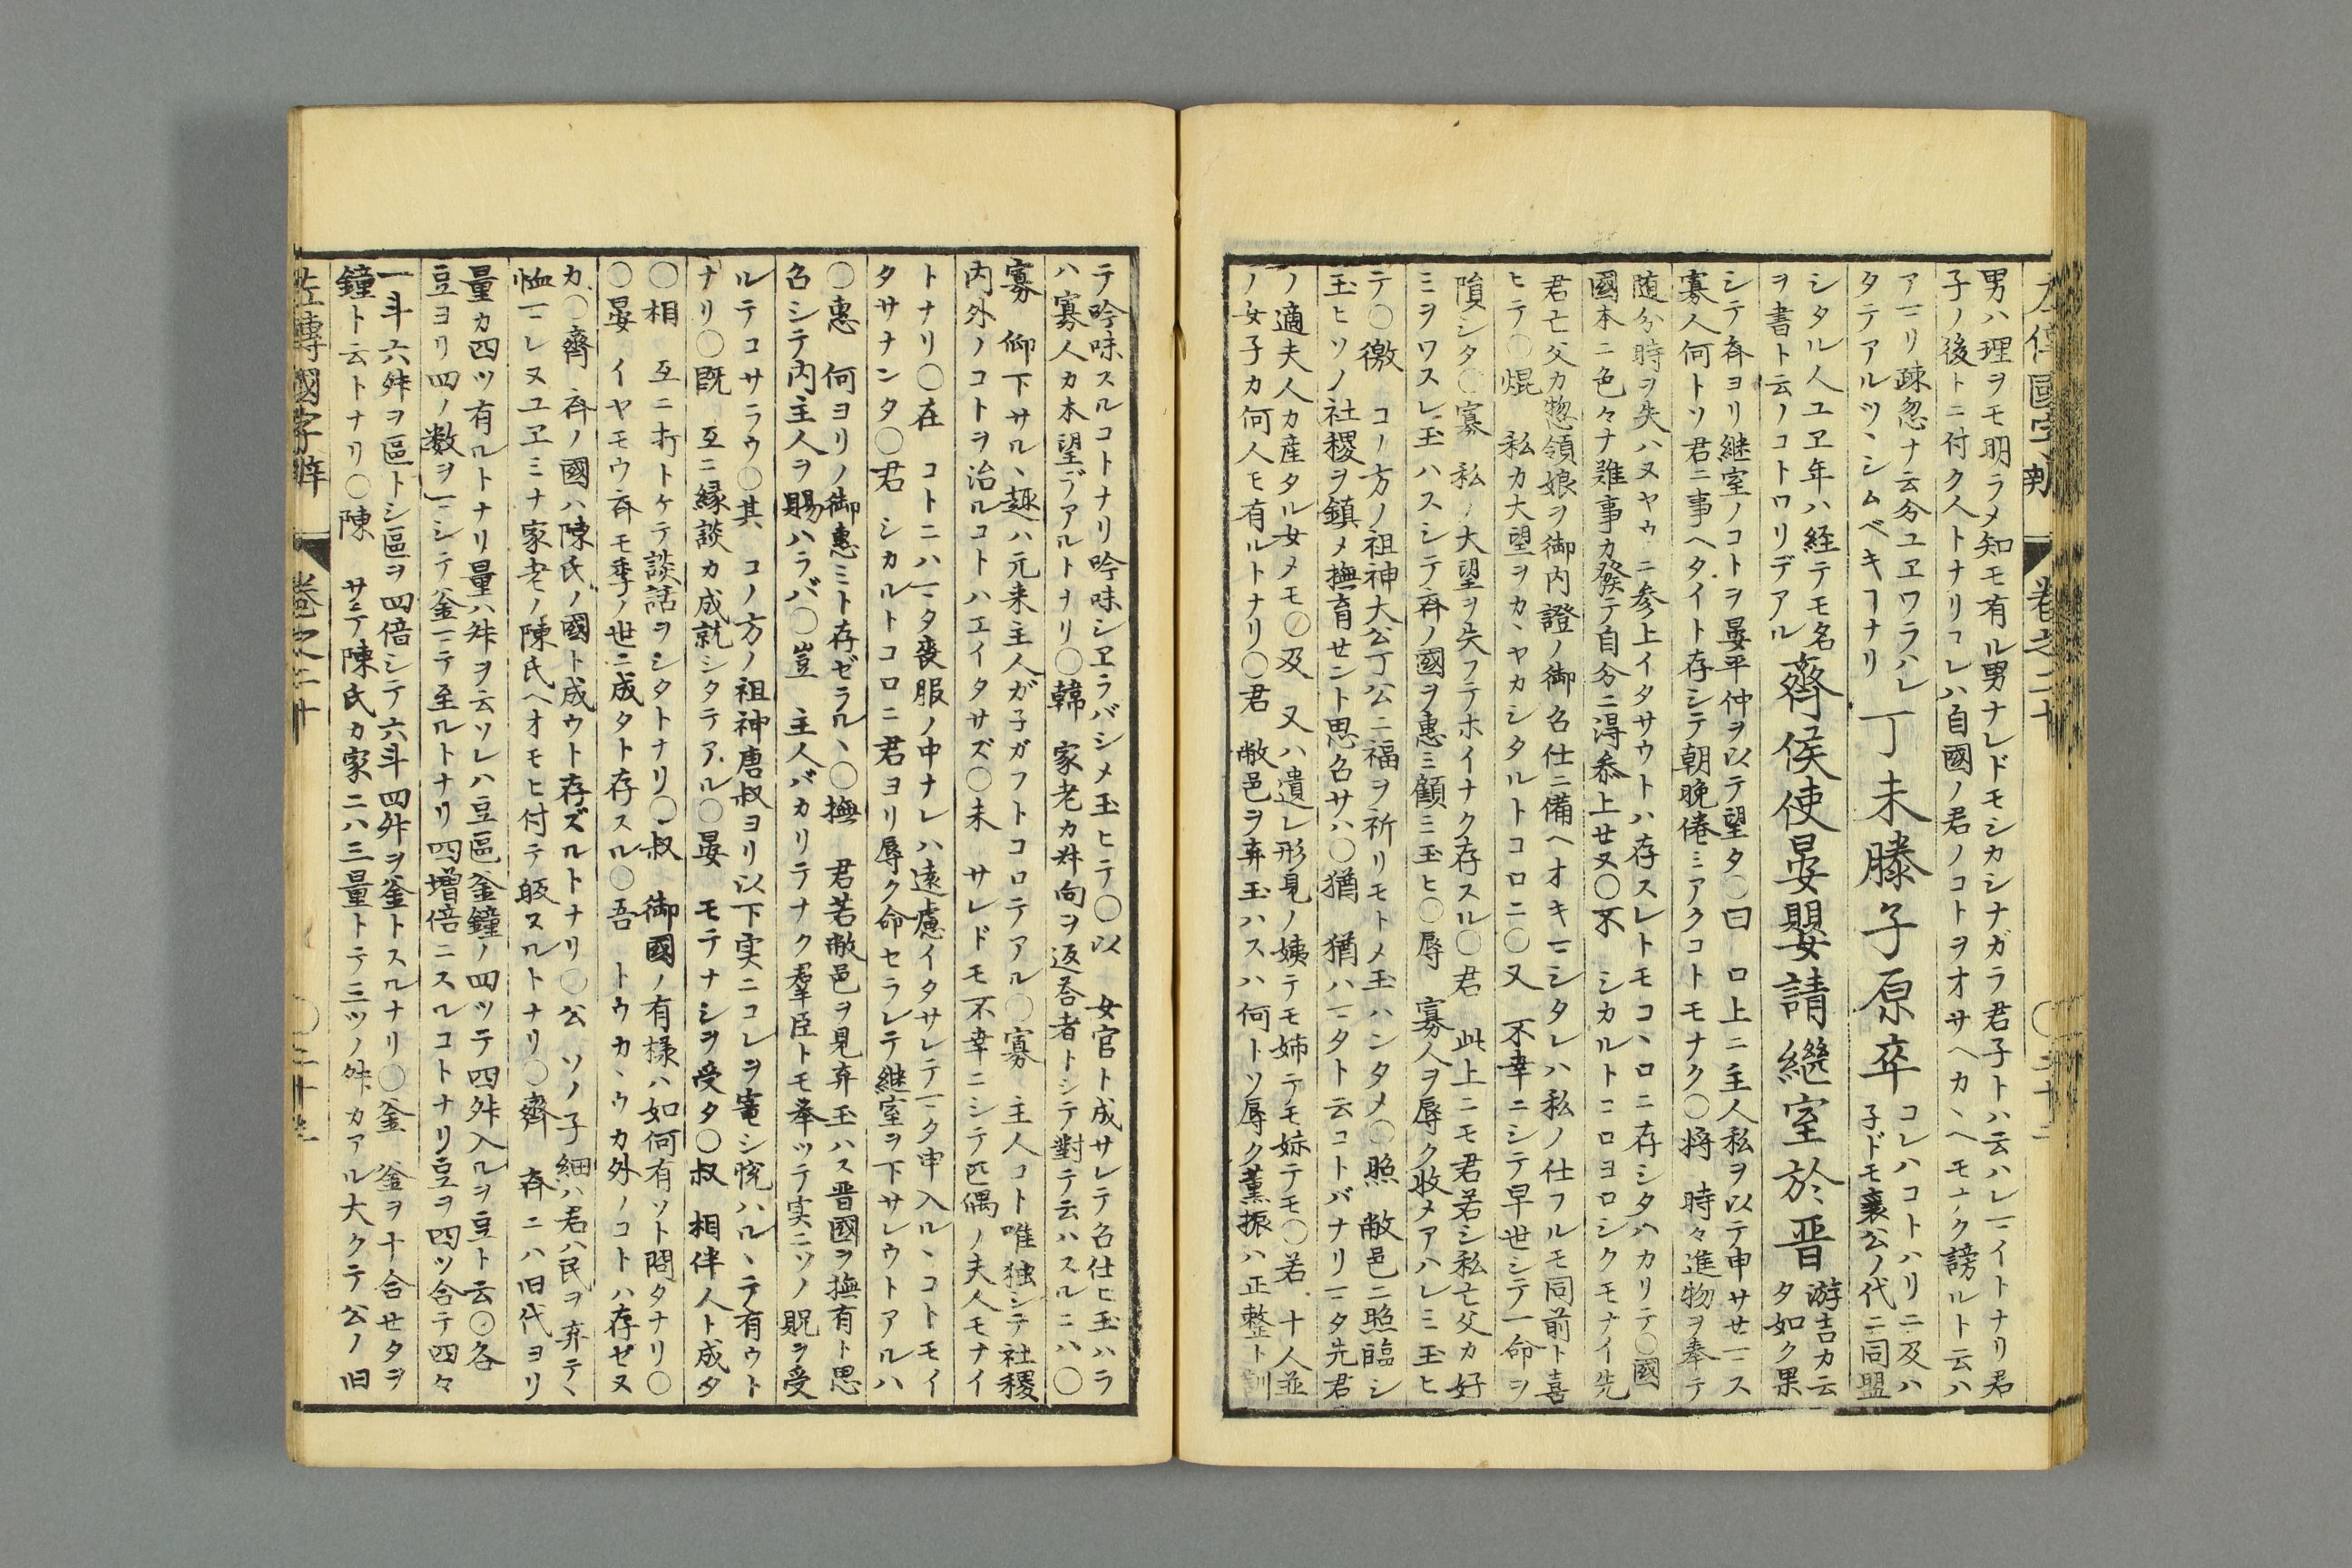 男ハ理ヲモ明ラメ知モ有ル男ナレドモシカシナガラ君子トハ云ハレマイトナリ君
子ノ後トニ付ク人トナリコレハ自國ノ君ノコトヲオサヘカヽヘモナク謗ルト云ハ
アマリ疎忽ナ云分ユヱワラハレ
タテアルツヽシムベキヿナリ
丁未滕子原卒
コレハコトハリニ及ハ
子ドモ襄公ノ代ニ同盟
シタル人ユヱ年ハ経テモ名
ヲ書ト云ノコトワリデアル
齊侯使晏嬰請繼室於晋
游吉カ云
タ如ク果
シテ斉ヨリ継室ノコトヲ晏平仲ヲ以テ望タ○曰 口上ニ主人私ヲ以テ申サセマス
寡人何トソ君ニ事ヘタイト存シテ朝晩倦ミアクコトモナク○将 時々進物ヲ奉テ
随分時ヲ失ハヌヤウニ参上イタサウトハ存スレトモコヽロニ存シタハカリテ○國
國本ニ色々ナ難事カ発テ自分ニ得参上セヌ○不 シカルトコロヨロシクモナイ先
君亡父カ惣領娘ヲ御内證ノ御召仕ニ備ヘオキマシタレハ私ノ仕フルモ同前ト喜
ヒテ○焜 私カ大望ヲカヽヤカシタルトコロニ○又 不幸ニシテ早世シテ一命ヲ
隕シタ○寡 私ノ大望ヲ失フテホイナク存スル○君 此上ニモ君若シ私亡父カ好
ミヲワスレ玉ハスシテ斉ノ國ヲ惠ミ顧ミ玉ヒ○辱 寡人ヲ辱ク收メアハレミ玉ヒ
テ○徼 コノ方ノ祖神大公丁公ニ福ヲ祈リモトメ玉ハンタメ○照 敝邑ニ照臨シ
玉ヒソノ社稷ヲ鎮メ撫育セント思召サハ○猶 猶ハマタト云コトバナリマタ先君
ノ適夫人カ産タル女メモ○及 又ハ遺レ形見ノ姨テモ姉テモ妹テモ○若 十人並
ノ女子カ何人モ有ルトナリ○君 敝邑ヲ弃玉ハスハ何トソ辱ク董振ハ正整ト訓
テ吟味スルコトナリ吟味シヱラバシメ玉ヒテ○以 女官ト成サレテ召仕ヒ玉ハラ
ハ寡人カ本望デアルトナリ○韓 家老カ舛向ヲ返答者トシテ對テ云ハスルニハ○
寡 仰下サルヽ趣ハ元来主人ガ子ガフトコロテアル○寡 主人コト唯独シテ社稷
内外ノコトヲ治ルコトハエイタサズ○未 サレドモ不幸ニシテ匹偶ノ夫人モナイ
トナリ○在 コトニハマタ喪服ノ中ナレハ遠慮イタサレテマタ申入ルヽコトモイ
タサナンタ○君 シカルトコロニ君ヨリ辱ク命セラレテ継室ヲ下サレウトアルハ
○惠 何ヨリノ御惠ミト存ゼラルヽ○撫 君若敝邑ヲ見弃玉ハス晋國ヲ撫有ト思
召シテ内主人ヲ賜ハラバ○豈 主人バカリテナク羣臣トモ挙ツテ実ニソノ貺ヲ受
ルテコサラウ○其 コノ方ノ祖神唐叔ヨリ以下実ニコレヲ寵シ悦ハルヽテ有ウト
ナリ○既 互ニ縁談カ成就シタテアル○晏 モテナシヲ受タ○叔 相伴人ト成タ
○相 互ニ打トケテ談話ヲシタトナリ○叔 御國ノ有様ハ如何有ソト問タナリ○
○晏 イヤモウ斉モ季ノ世ニ成タト存スル○吾 トウカヽウカ外ノコトハ存ゼヌ
カ○齊 斉ノ國ハ陳氏ノ國ト成ウト存ズルトナリ○公 ソノ子細ハ君ハ民ヲ弃テヽ
恤マレヌユヱミナ家老ノ陳氏ヘオモヒ付テ皈スルトナリ○齊 斉ニハ旧代ヨリ
量カ四ツ有ルトナリ量ハ舛ヲ云ソレハ豆區釜鐘ノ四ツテ四舛入ルヲ豆ト云○各
豆ヨリ四ノ数ヲマシテ釜マテ至ルトナリ四増倍ニスルコトナリ豆ヲ四ツ合テ四々
一斗六舛ヲ區トシ區ヲ四倍シテ六斗四舛ヲ釜トスルナリ○釜 釜ヲ十合セタヲ
鐘ト云トナリ○陳 サテ陳氏カ家ニハ三量トテ三ツノ舛カアル大クテ公ノ旧
左傳國字辯 卷之二十